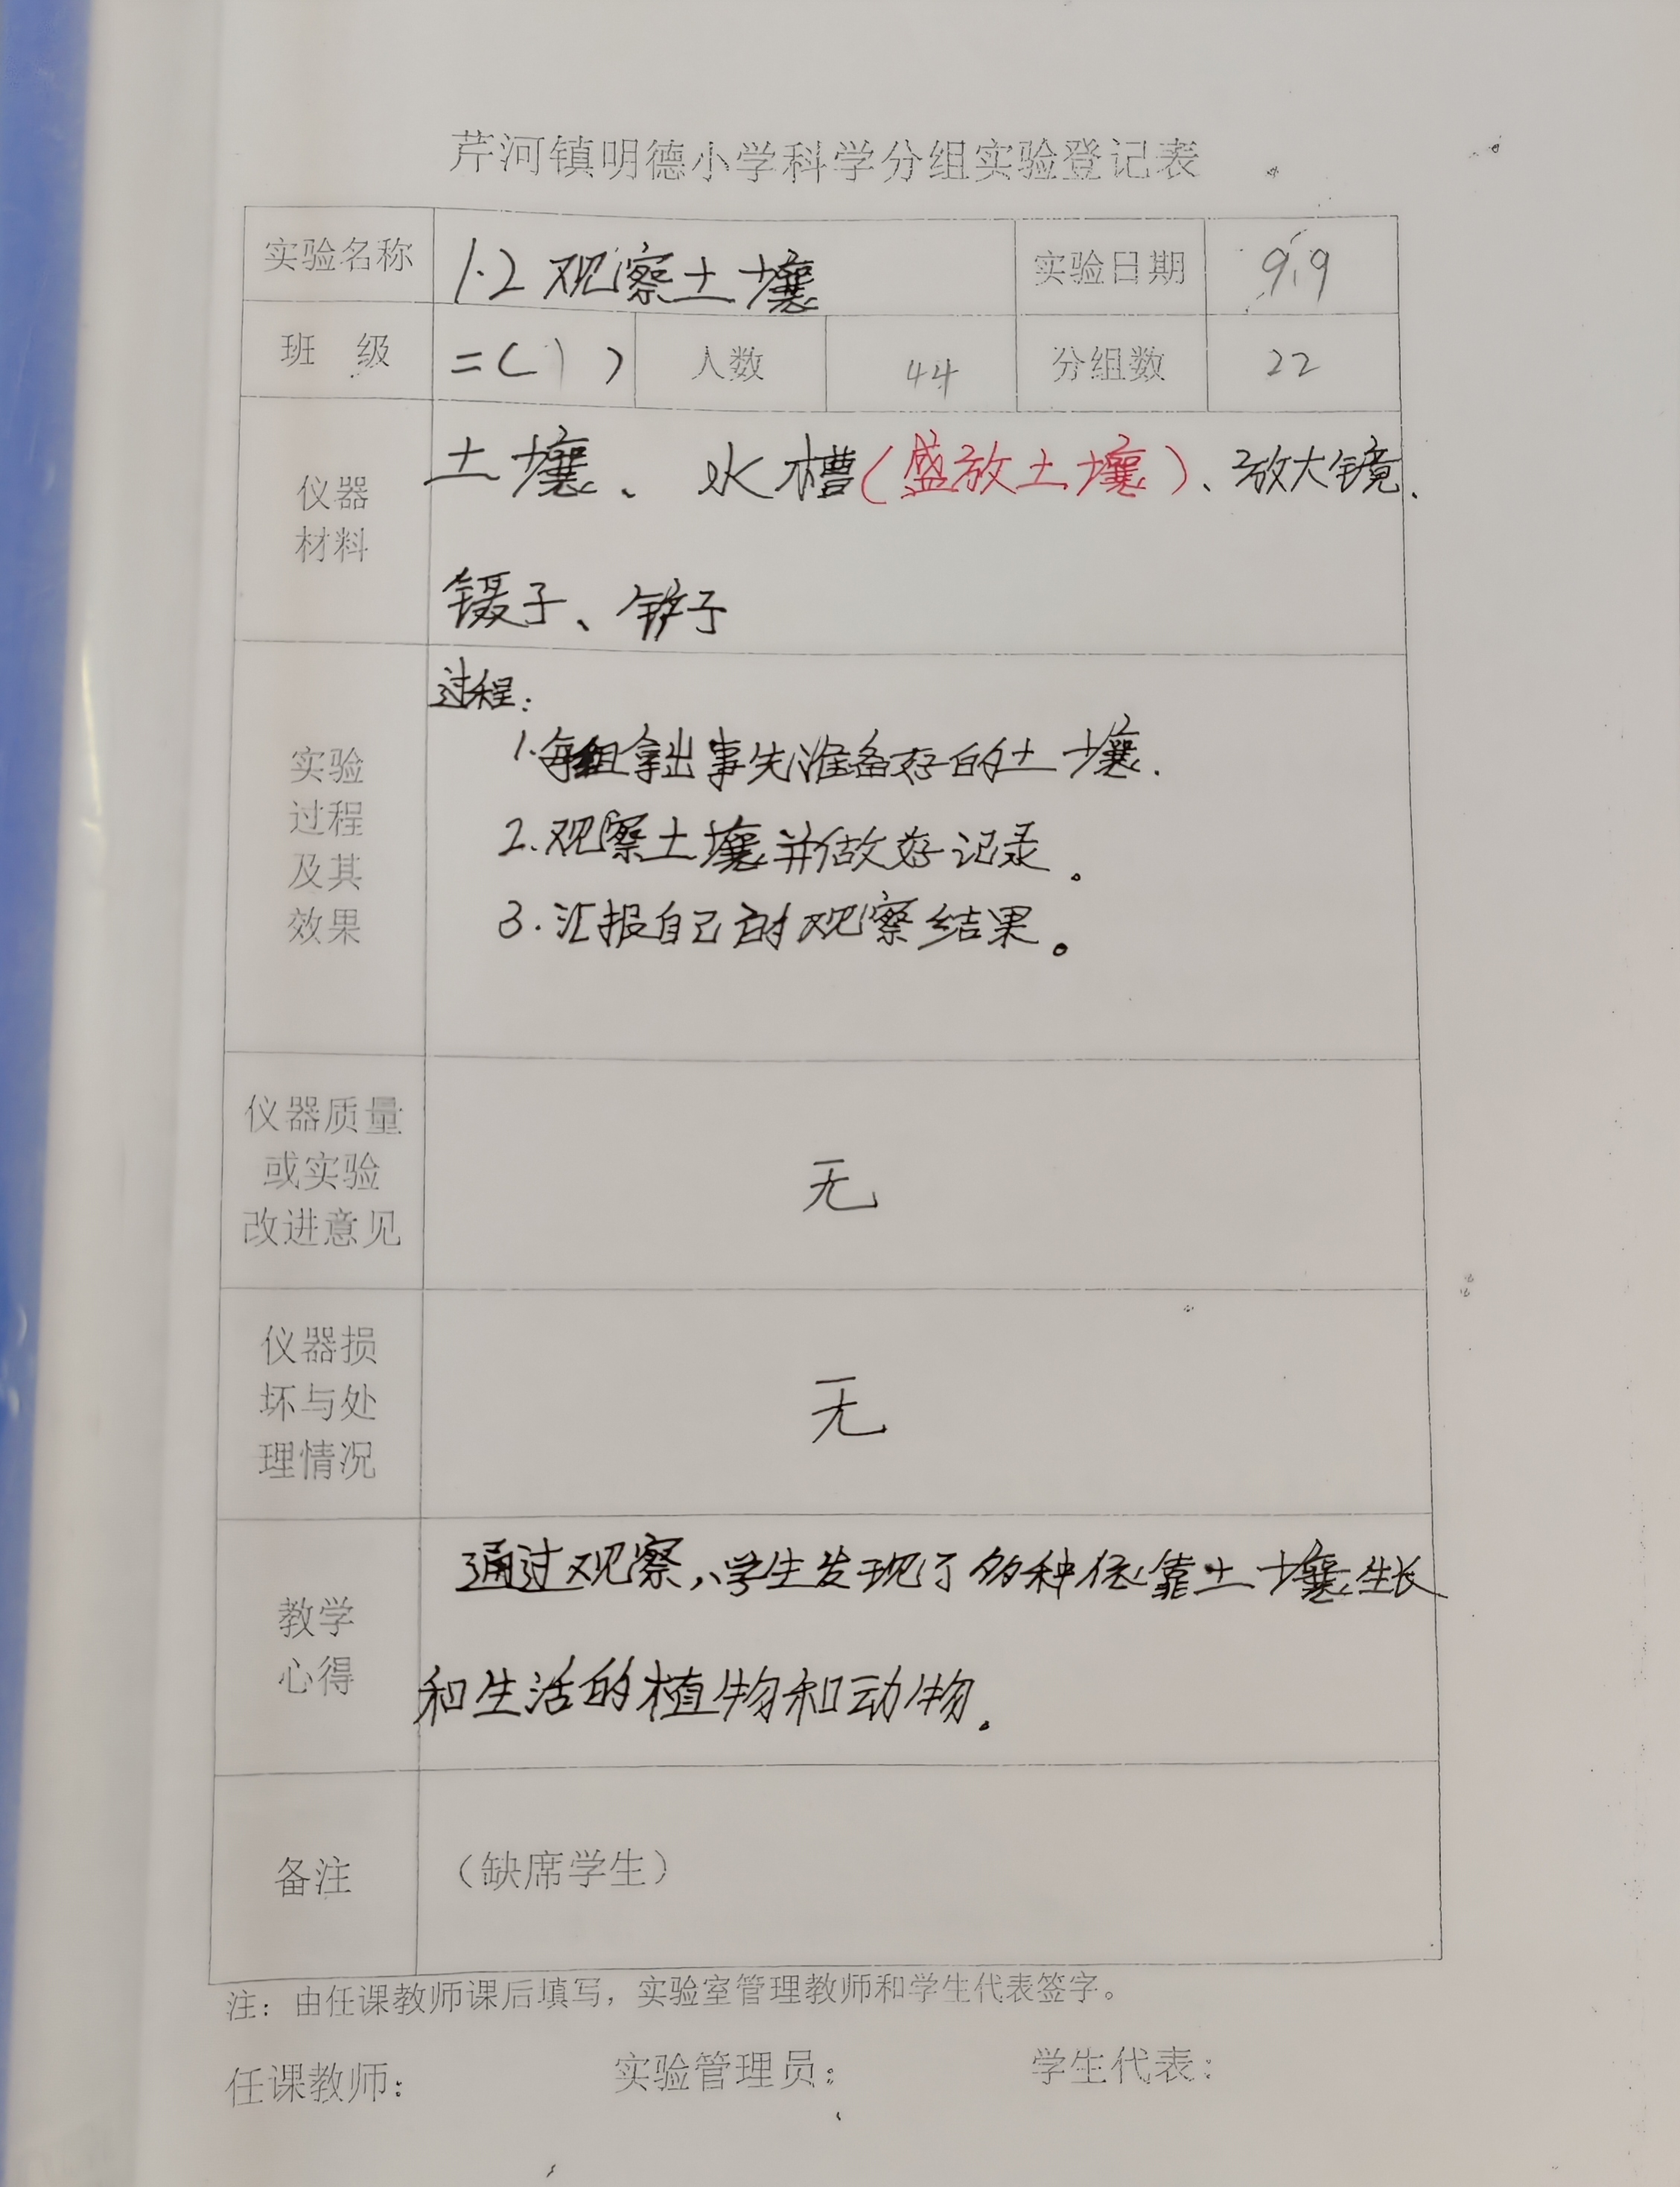 芹河镇明德小学科学分组实验登记表
实验名称 1.2 观察土壤 实验日期 9.9
班 级 二(1) 人数 44 分组数 22
仪器
材料
土壤、水槽(盛放土壤)、放大镜、
镊子、铲子
实验
过程
及其
效果
过程:
1.每组拿出事先准备好的土壤.
2.观察土壤并做好记录。
3.汇报自己的观察结果。
仪器质量
或实验
改进意见
无
仪器损
坏与处
理情况
无
教学
心得
通过观察,学生发现了多种依靠土壤生长
和生活的植物和动物.
备注 (缺席学生)
注:由任课教师课后填写,实验室管理教师和学生代表签字。
任课教师: 实验管理员: 学生代表: